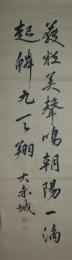 美聲鳴朝陽一滴
起鱗九天翔 大赤城